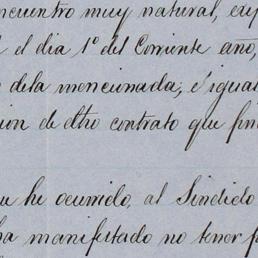 ncuentro muy natural, exp
el dia 1º del Corriente año,
dela mencionada, é igual
ion de dho contrato que fui
u he ocurrido, al Sindico
ha manifestado no tener p